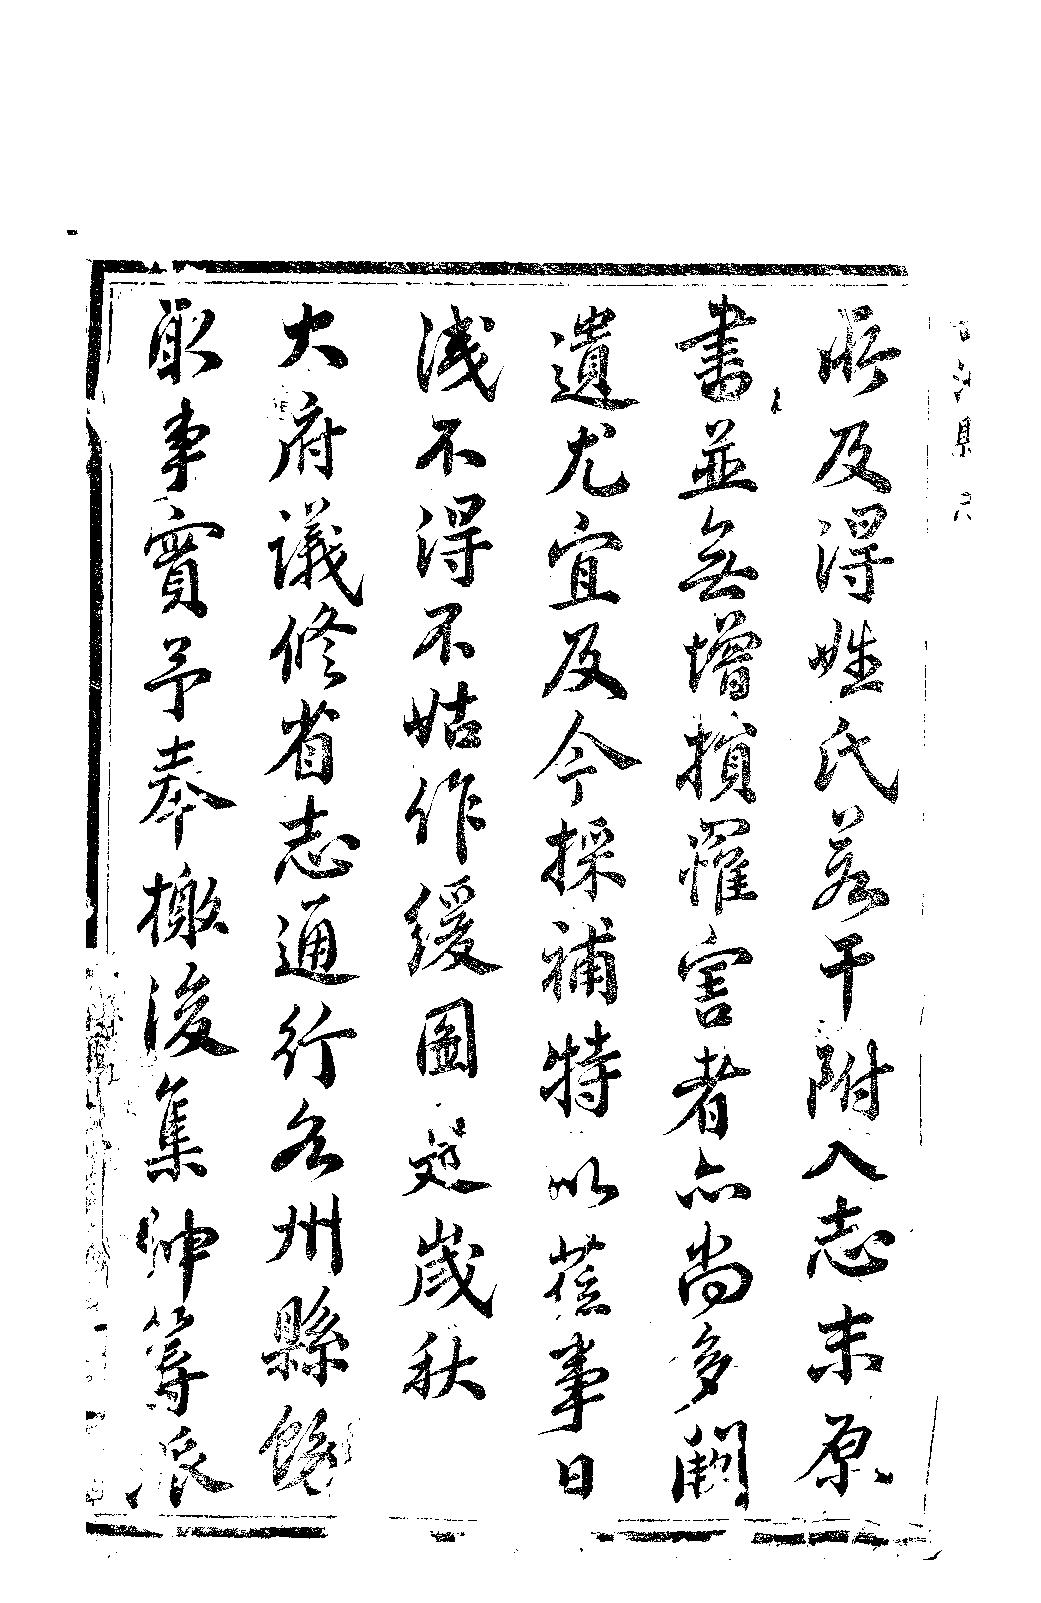 所及得姓氏若干附入志末原
書並無增損罹害者亦尚多闕
遺尤宜及今採補特以蒞事日
淺不得不姑作緩圖歲秋
大府議修省志通行各州縣飭
取事實予奉檄後集紳籌派